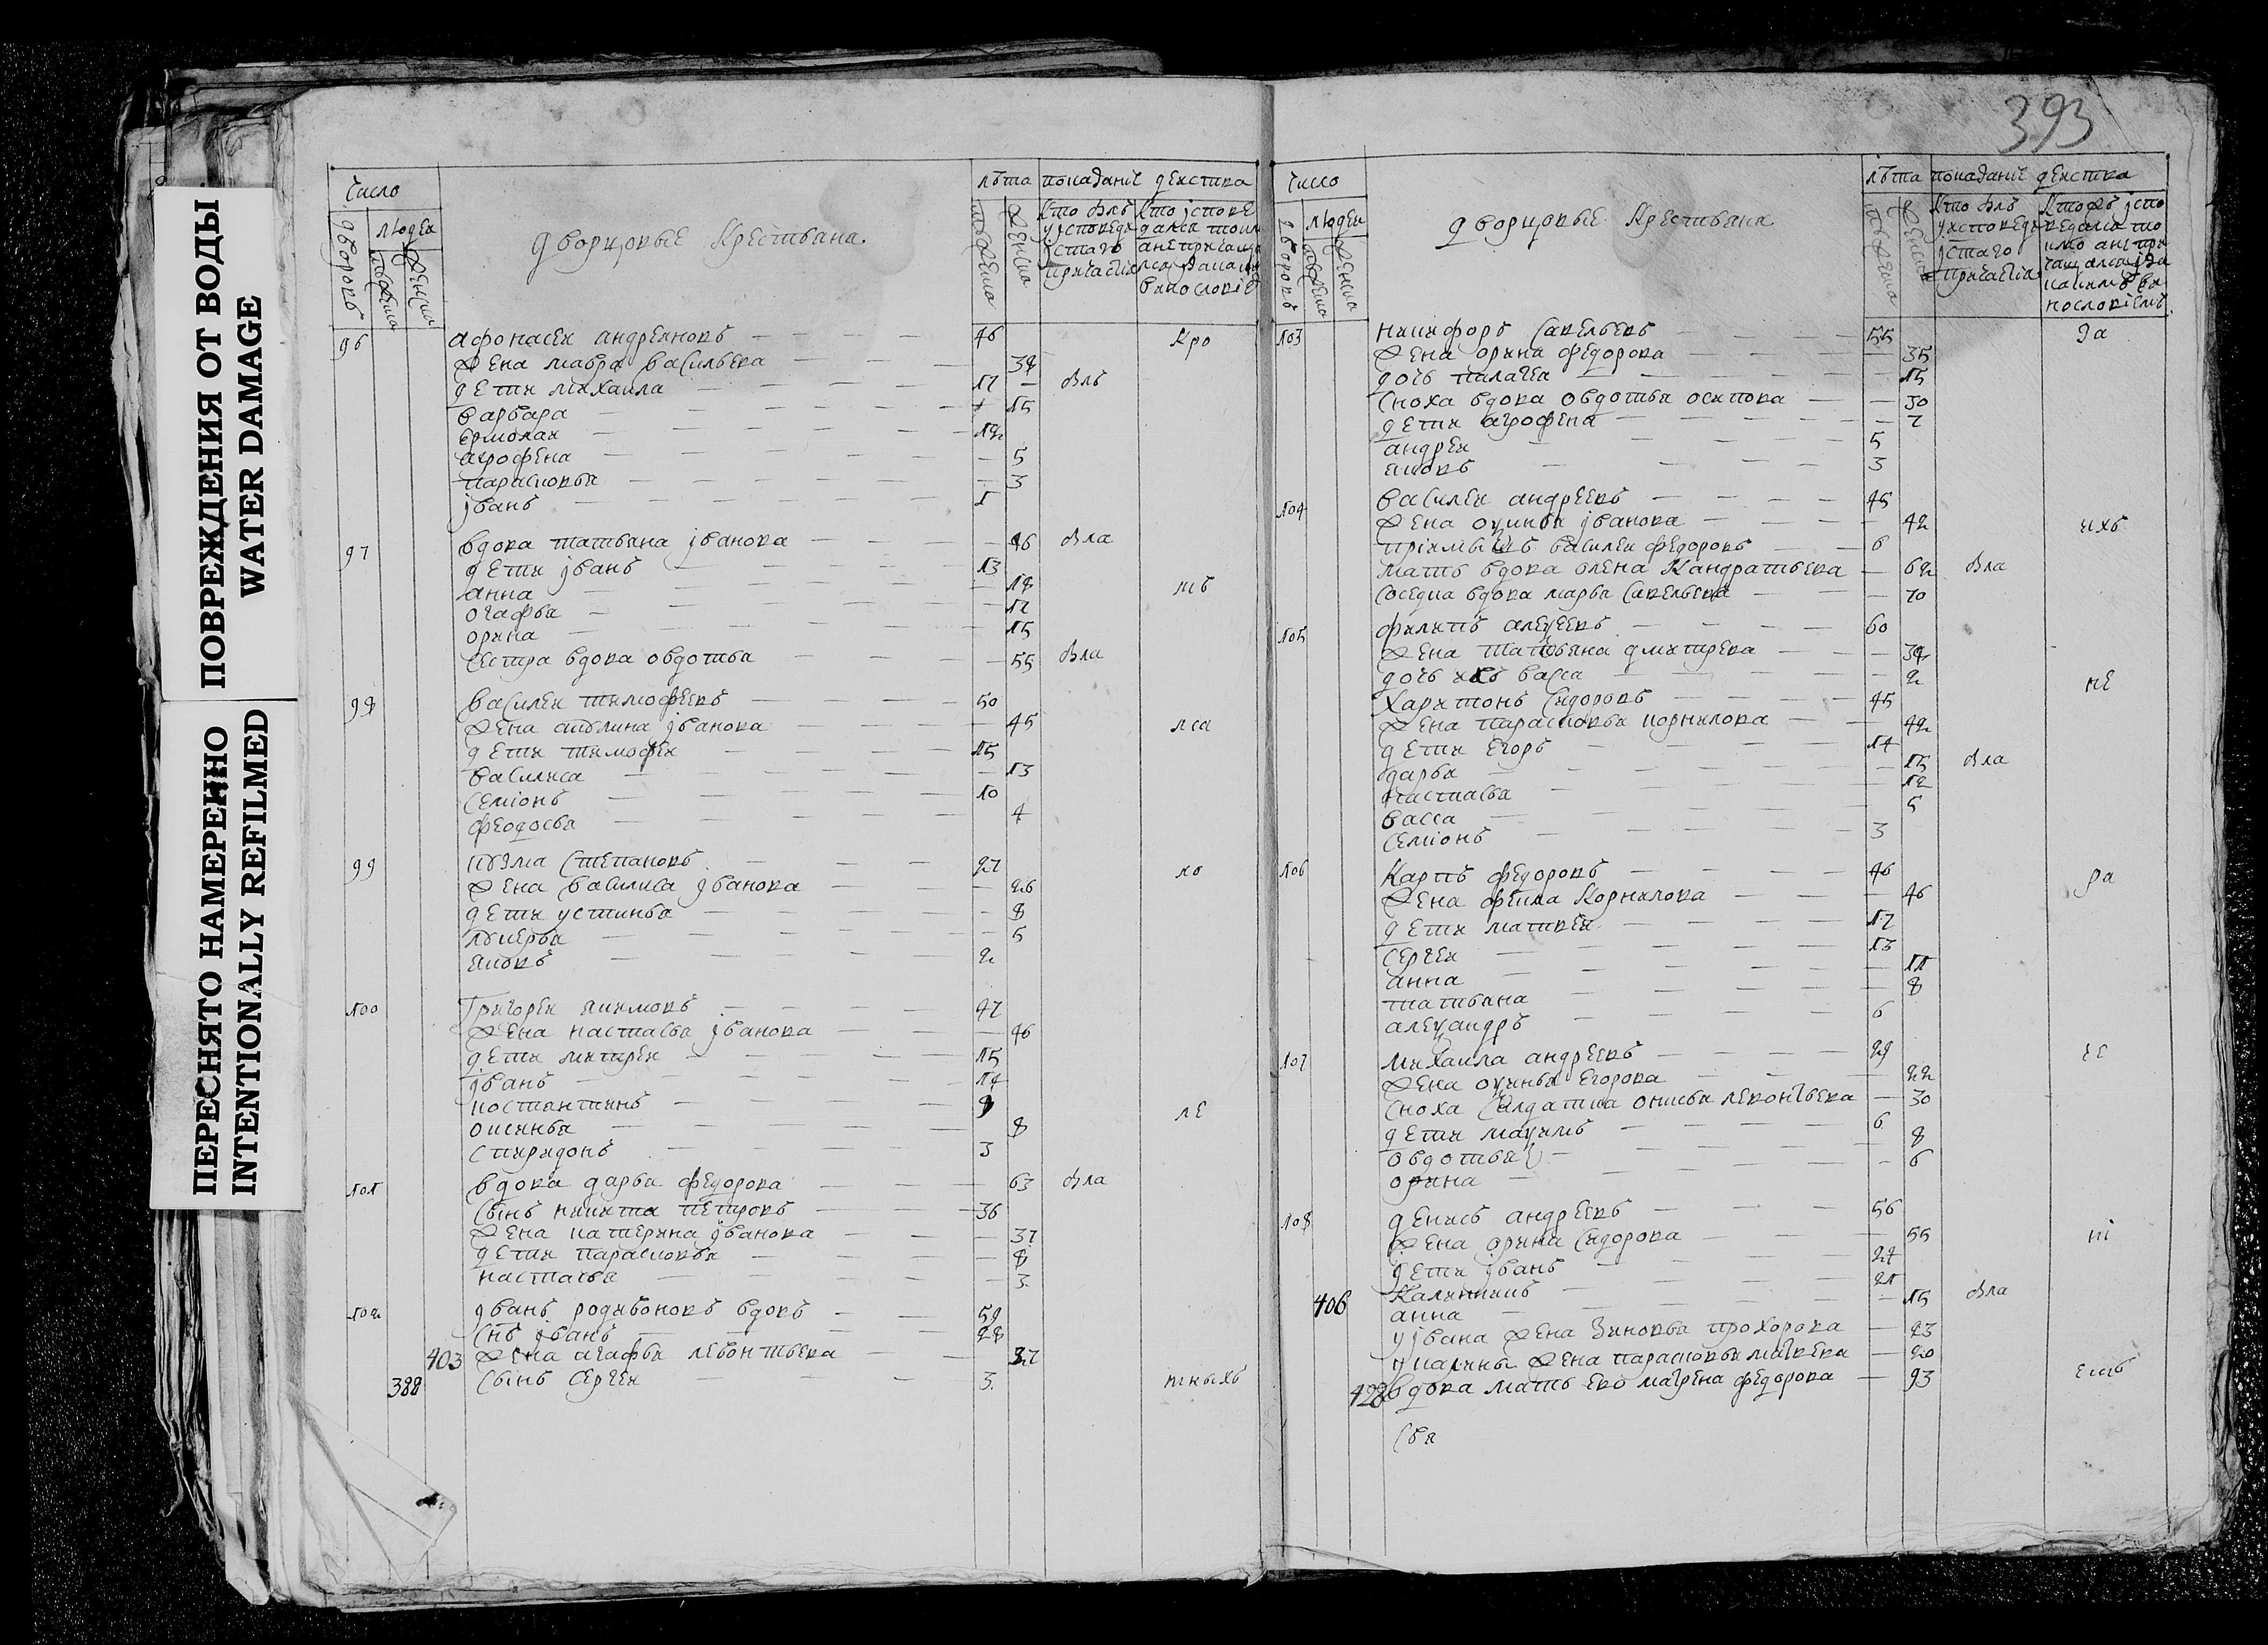 ПЕРЕСНЯТО НАМЕРЕННО ПОВРЕЖДЕНИЯ ОТ ВОДЫ
INTENTIONALLY REFILMED WATER DAMAGE
393
число
дворовъ
людеи
мужеска
женска
дворцовые крестьяна
лѣта
показаниe деиства
мужеска
женска
Кто былъ
96 афонасеи андреяновъ — 46 Кро
жена мавра васильева — 38
дети михаила — 17 — былъ
варвара — 15
ермолаи — 12
агрофена — 5
парасковья — 3
јванъ — 1
97 вдова татьяна јванова — 46 была
дети јванъ — 13
анна — 18 мѣ
огафья — 17
орина — 15
сестра вдова овдотья — 55 была
98 василеи тимофеевъ — 50
жена акулина јванова — 45 лса
дети тимофеи — 15
василиса — 13
семіонъ — 10
феодосья — 4
99 кузма степановъ — 27 ло
жена василиса јванова — 26
дети устинья — 8
лукерья — 5
яковъ — 2
100 Григореи акимовъ — 47
жена настасья јванова — 46
дети митреи — 15
јванъ — 14
костянтинъ — 9 ле
оксинья — 8
спиридонъ — 3
101 вдова дарья федорова — 63 была
сынъ никита петровъ — 36
жена катерина јванова — 37
дети парасковья — 8
настасья — 3
102 јванъ родивоновъ вдовъ — 59
снъ јванъ — 28
403 жена агафья левонтьева — 27
388 сынъ сергеи — 3 тныхъ
число
дворовъ
людеи
мужеска
женска
дворцовые Крестьяна
лѣта
показаниe деиства
мужеска
женска
Кто былъ
103 никифоръ савельевъ — 55 За
жена орина федорова — 35
дочь палагея — 15
сноха вдова овдотья осипова — 30
дети агрофена — 7
андреи — 5
яковъ — 3
104 василеи андреевъ — 45
жена оксинья јванова — 42 ихъ
пріимышъ василеи федоровъ — 6
мать вдова олена Кандратьева — 62 была
соседка вдова марья савельева — 70
105 филипъ алексеевъ — 60
жена татьяна дмитрева — 38
дочь ихъ васса — 2 не
харитонъ сидоровъ — 45
жена парасковья корнилова — 42
дети егоръ — 14
дарья — 15 была
настасья — 12
васса — 5
семіонъ — 3
106 Карпъ федоровъ — 46 ра
жена фекла Корнилова — 46
дети матвеи — 17
сергеи — 13
анна — 11
татьяна — 8
александръ — 6
107 михаила андреевъ — 29 че
жена оксинья егорова — 22
сноха салдатка онисья левонтьева — 30
дети максимъ — 6
овдотья — 8
орина — 6
108 денисъ андреевъ — 56
жена орина сидорова — 55 ні
дети јванъ — 24
Калинникъ — 21
406 анна — 15 была
у јвана жена Зиновья прохорова — 23
у калины жена парасковья матвева — 20
428 вдова мать ево матрена федорова — 93 емъ
Свя